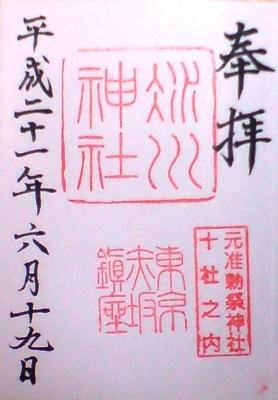 奉拝
元准勅祭神社
十社之内
氷川
神社
東京
赤坂
鎮座
平成二十一年六月十九日